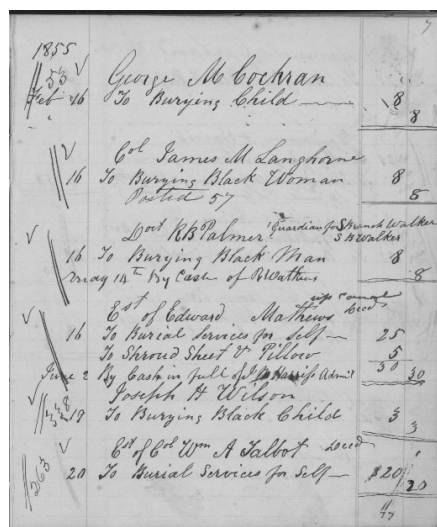 7
1855
53 George M Cochran
Feb 16 To Burying Child 8
8
Col James M Langhorne
16 To Burying Black Woman 8
Posted 57 8
Doct RB Palmer Guardian for S Branch Walker
S B Walker
16 To Burying Black Man 8
May 14th By Cash of R Watkins 8
Est of Edward Mathews Decd
16 To Burial Services for Self 25
To Shroud Sheet & Pillow 5
30
June 2 By Cash in full of Harriss Admr 30
Joseph H Wilson
338 19 To Burying Black Child 3
3
Est of Col Wm A Talbot Decd
363 20 To Burial Services for Self $20
20